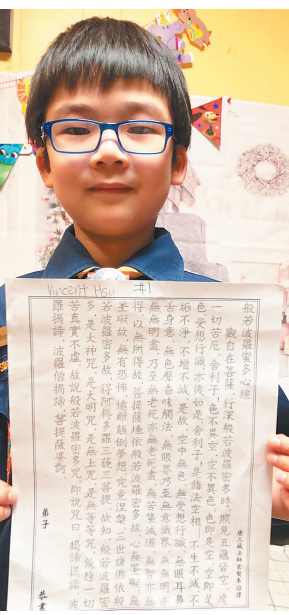 Vincent Hsu #1
般若波羅密多心經
唐三藏法師玄奘奉詔譯
觀自在菩薩、行深般若波羅密多時、照見五蘊皆空、度
一切苦厄、舍利子、色不異空、空不異色、色即是空、空即是
色、受想行識、亦復如是、舍利子、是諸法空相、不生不滅、不
垢不淨、不增不減、是故、空中無色、無受想行識、無眼耳鼻
舌身意、無色聲香味觸法、無眼界乃至無意識界、無無明亦
無無明盡、乃至無老死、亦無老死盡、無苦集滅道、無智亦無
得、以無所得故、菩提薩埵依般若波羅密多故、心無罣礙、無
罣礙故、無有恐怖、遠離顛倒夢想、究竟涅槃、三世諸佛依般
若波羅密多故、得阿耨多羅三藐三菩提、故知、般若波羅密
多、是大神咒、是大明咒、是無上咒、是無等等咒、能除一切
苦、真實不虛、故說般若波羅密多咒、即說咒曰、揭諦揭諦、波
羅揭諦、波羅僧揭諦、菩提薩婆訶
弟子 恭書